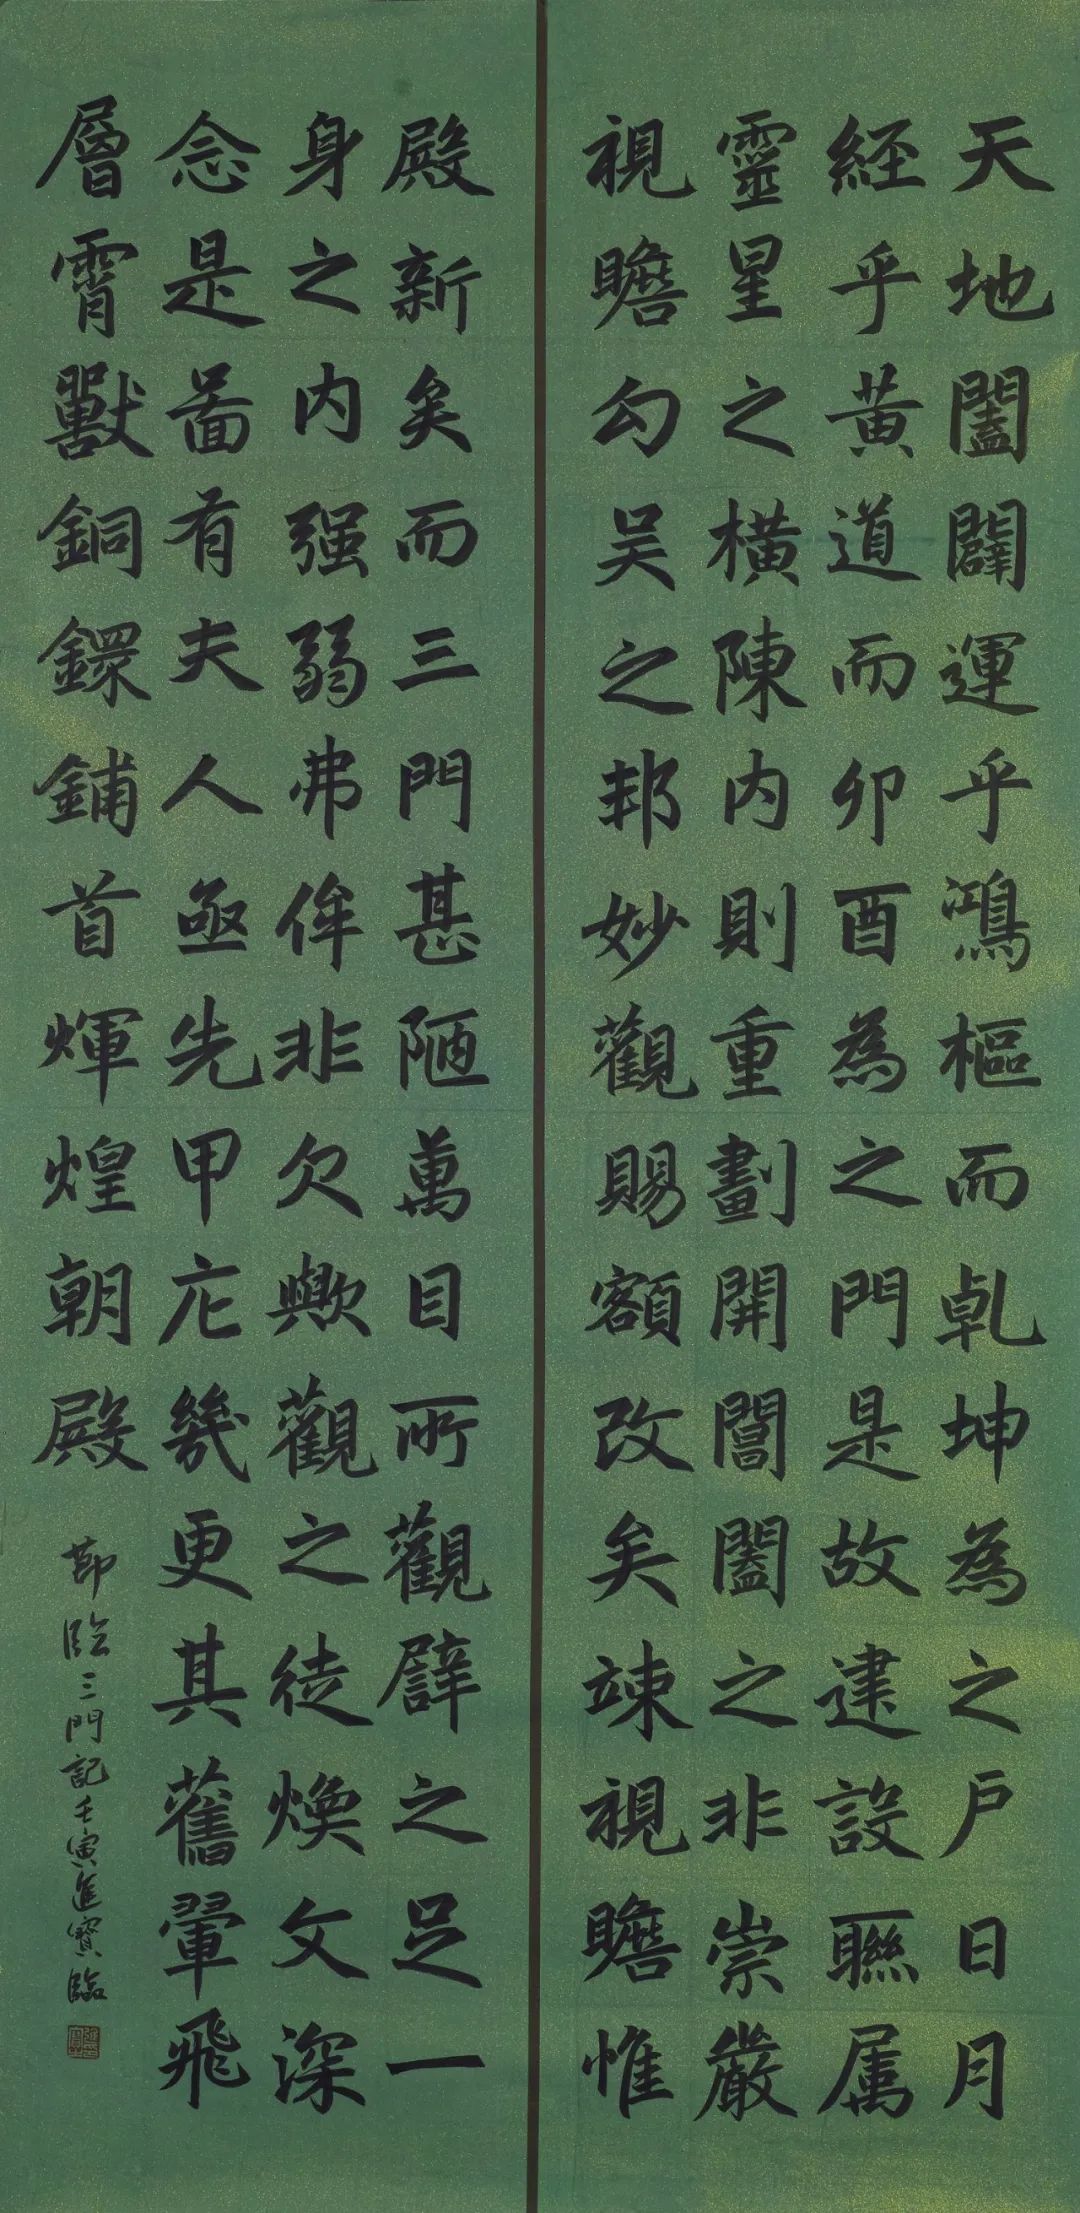 天地闔闢運乎鴻樞而乹坤為之户日月
經乎黃道而卯酉為之門是故建設聯属
靈星之橫陳内則重劃開閶闔之非崇嚴
視瞻勾吴之邦妙觀賜額改矣竦視瞻惟
殿新矣而三門甚陋萬目所觀譬之足一
身之内强弱弗侔非欠歟觀之徒煥文深
念是啚有夫人亟先甲庀幾更其舊翬飛
層霄獸銅鐶鋪首煇煌朝殿
節臨三門記壬寅進寶臨